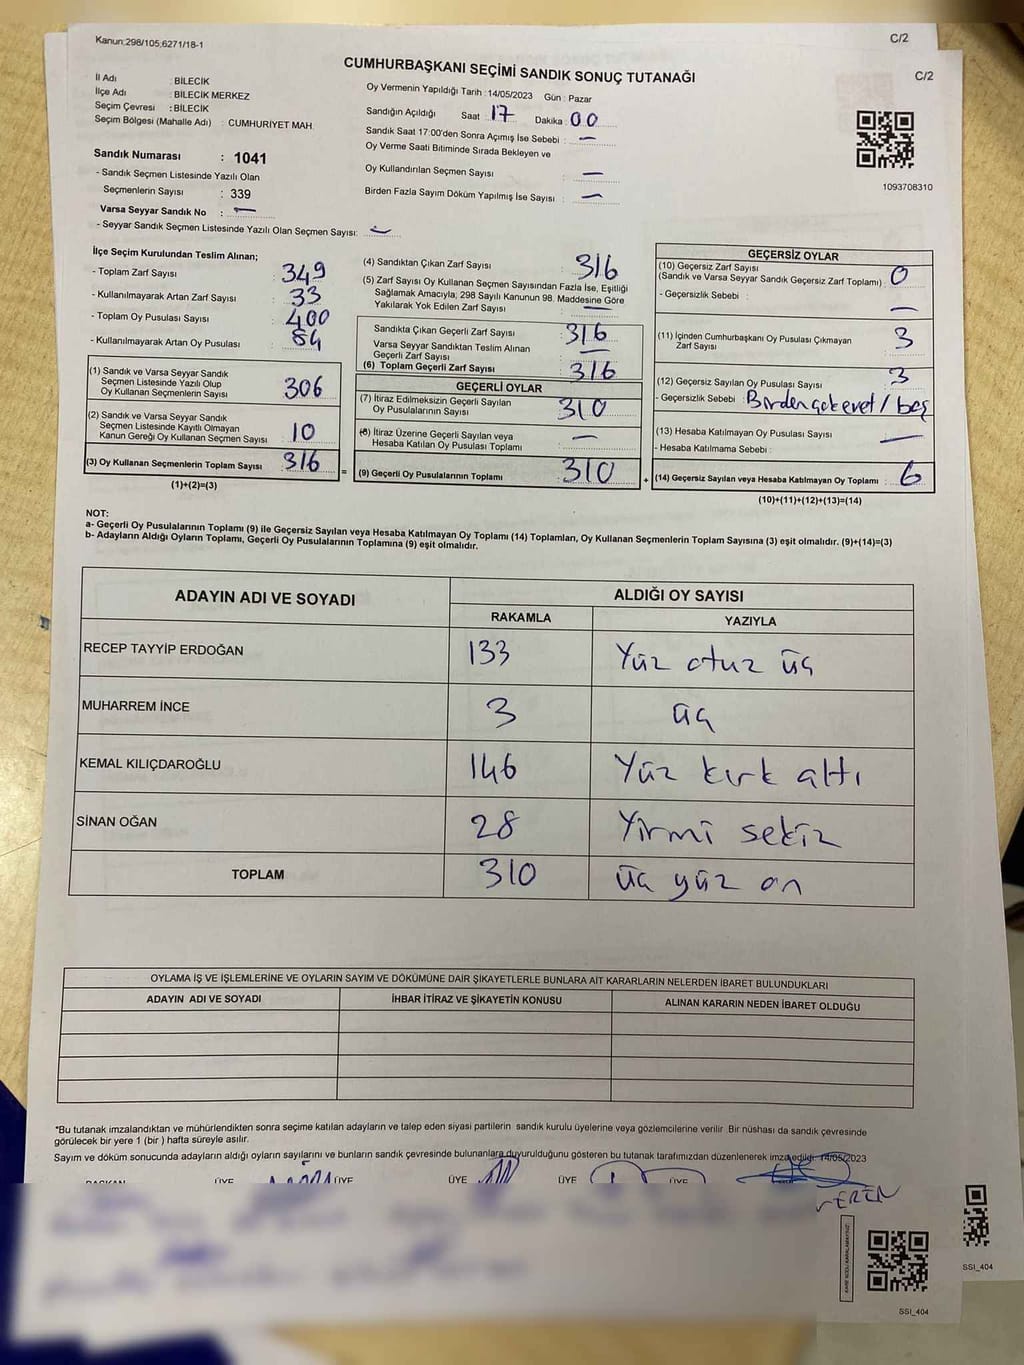 Kanun:298/105;6271/18-1
C/2
C/2
CUMHURBAŞKANI SEÇİMİ SANDIK SONUÇ TUTANAĞI
İl Adı : BİLECİK
İlçe Adı : BİLECİK MERKEZ
Seçim Çevresi : BİLECİK
Seçim Bölgesi (Mahalle Adı) : CUMHURİYET MAH.
Sandık Numarası : 1041
- Sandık Seçmen Listesinde Yazılı Olan
Seçmenlerin Sayısı : 339
Varsa Seyyar Sandık No : —
- Seyyar Sandık Seçmen Listesinde Yazılı Olan Seçmen Sayısı: —
Oy Vermenin Yapıldığı Tarih : 14/05/2023 Gün : Pazar
Sandığın Açıldığı Saat : 17 Dakika : 00
Sandık Saat 17:00'den Sonra Açımış İse Sebebi : —
Oy Verme Saati Bitiminde Sırada Bekleyen ve
Oy Kullandırılan Seçmen Sayısı : —
Birden Fazla Sayım Döküm Yapılmış İse Sayısı : —
1093708310
İlçe Seçim Kurulundan Teslim Alınan;
- Toplam Zarf Sayısı : 349
- Kullanılmayarak Artan Zarf Sayısı : 33
- Toplam Oy Pusulası Sayısı : 400
- Kullanılmayarak Artan Oy Pusulası : 84
(1) Sandık ve Varsa Seyyar Sandık
Seçmen Listesinde Yazılı Olup
Oy Kullanan Seçmenlerin Sayısı : 306
(2) Sandık ve Varsa Seyyar Sandık
Seçmen Listesinde Kayıtlı Olmayan
Kanun Gereği Oy Kullanan Seçmen Sayısı : 10
(3) Oy Kullanan Seçmenlerin Toplam Sayısı : 316
(1)+(2)=(3)
(4) Sandıktan Çıkan Zarf Sayısı : 316
(5) Zarf Sayısı Oy Kullanan Seçmen Sayısından Fazla İse, Eşitliği
Sağlamak Amacıyla; 298 Sayılı Kanunun 98. Maddesine Göre
Yakılarak Yok Edilen Zarf Sayısı : —
Sandıkta Çıkan Geçerli Zarf Sayısı : 316
Varsa Seyyar Sandıktan Teslim Alınan
Geçerli Zarf Sayısı : —
(6) Toplam Geçerli Zarf Sayısı : 316
GEÇERLİ OYLAR
(7) İtiraz Edilmeksizin Geçerli Sayılan
Oy Pusulalarının Sayısı : 310
(8) İtiraz Üzerine Geçerli Sayılan veya
Hesaba Katılan Oy Pusulası Toplamı : —
= (9) Geçerli Oy Pusulalarının Toplamı : 310 +
GEÇERSİZ OYLAR
(10) Geçersiz Zarf Sayısı
(Sandık ve Varsa Seyyar Sandık Geçersiz Zarf Toplamı) : 0
- Geçersizlik Sebebi : —
(11) İçinden Cumhurbaşkanı Oy Pusulası Çıkmayan
Zarf Sayısı : 3
(12) Geçersiz Sayılan Oy Pusulası Sayısı : 3
- Geçersizlik Sebebi : Birden çok evet / boş
(13) Hesaba Katılmayan Oy Pusulası Sayısı : —
- Hesaba Katılmama Sebebi :
(14) Geçersiz Sayılan veya Hesaba Katılmayan Oy Toplamı : 6
(10)+(11)+(12)+(13)=(14)
NOT:
a- Geçerli Oy Pusulalarının Toplamı (9) ile Geçersiz Sayılan veya Hesaba Katılmayan Oy Toplamı (14) Toplamları, Oy Kullanan Seçmenlerin Toplam Sayısına (3) eşit olmalıdır. (9)+(14)=(3)
b- Adayların Aldığı Oyların Toplamı, Geçerli Oy Pusulalarının Toplamına (9) eşit olmalıdır.
ADAYIN ADI VE SOYADI ALDIĞI OY SAYISI
RAKAMLA YAZIYLA
RECEP TAYYİP ERDOĞAN 133 Yüz otuz üç
MUHARREM İNCE 3 üç
KEMAL KILIÇDAROĞLU 146 Yüz kırk altı
SİNAN OĞAN 28 Yirmi sekiz
TOPLAM 310 üç yüz on
OYLAMA İŞ VE İŞLEMLERİNE VE OYLARIN SAYIM VE DÖKÜMÜNE DAİR ŞİKAYETLERLE BUNLARA AİT KARARLARIN NELERDEN İBARET BULUNDUKLARI
ADAYIN ADI VE SOYADI İHBAR İTİRAZ VE ŞİKAYETİN KONUSU ALINAN KARARIN NEDEN İBARET OLDUĞU
*Bu tutanak imzalandıktan ve mühürlendikten sonra seçime katılan adayların ve talep eden siyasi partilerin sandık kurulu üyelerine veya gözlemcilerine verilir. Bir nüshası da sandık çevresinde
görülecek bir yere 1 (bir ) hafta süreyle asılır.
Sayım ve döküm sonucunda adayların aldığı oyların sayılarını ve bunların sandık çevresinde bulunanlara duyurulduğunu gösteren bu tutanak tarafımızdan düzenlenerek imza edildi. 14/05/2023
BAŞKAN ÜYE ÜYE ÜYE ÜYE ÜYE
SSI_404
SSI_404